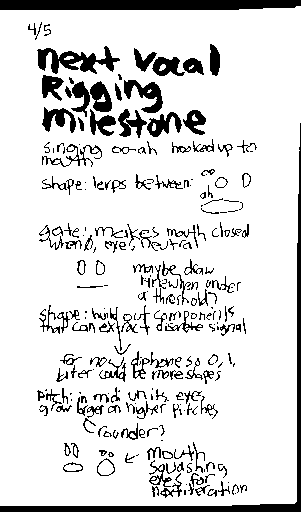 4/5
next Vocal
Rigging
Milestone
singing oo-ah hooked up to
mouth
shape: lerps between: oo
ah
gate: makes mouth closed
when 0, eyes neutral
maybe draw
line when under
a threshold?
shape: build out components
that can extract discrete signal
for now, diphone so 0, 1,
later could be more shapes
pitch: in midi units, eyes
grow larger on higher pitches
rounder?
mouth
squashing
eyes for
next iteration